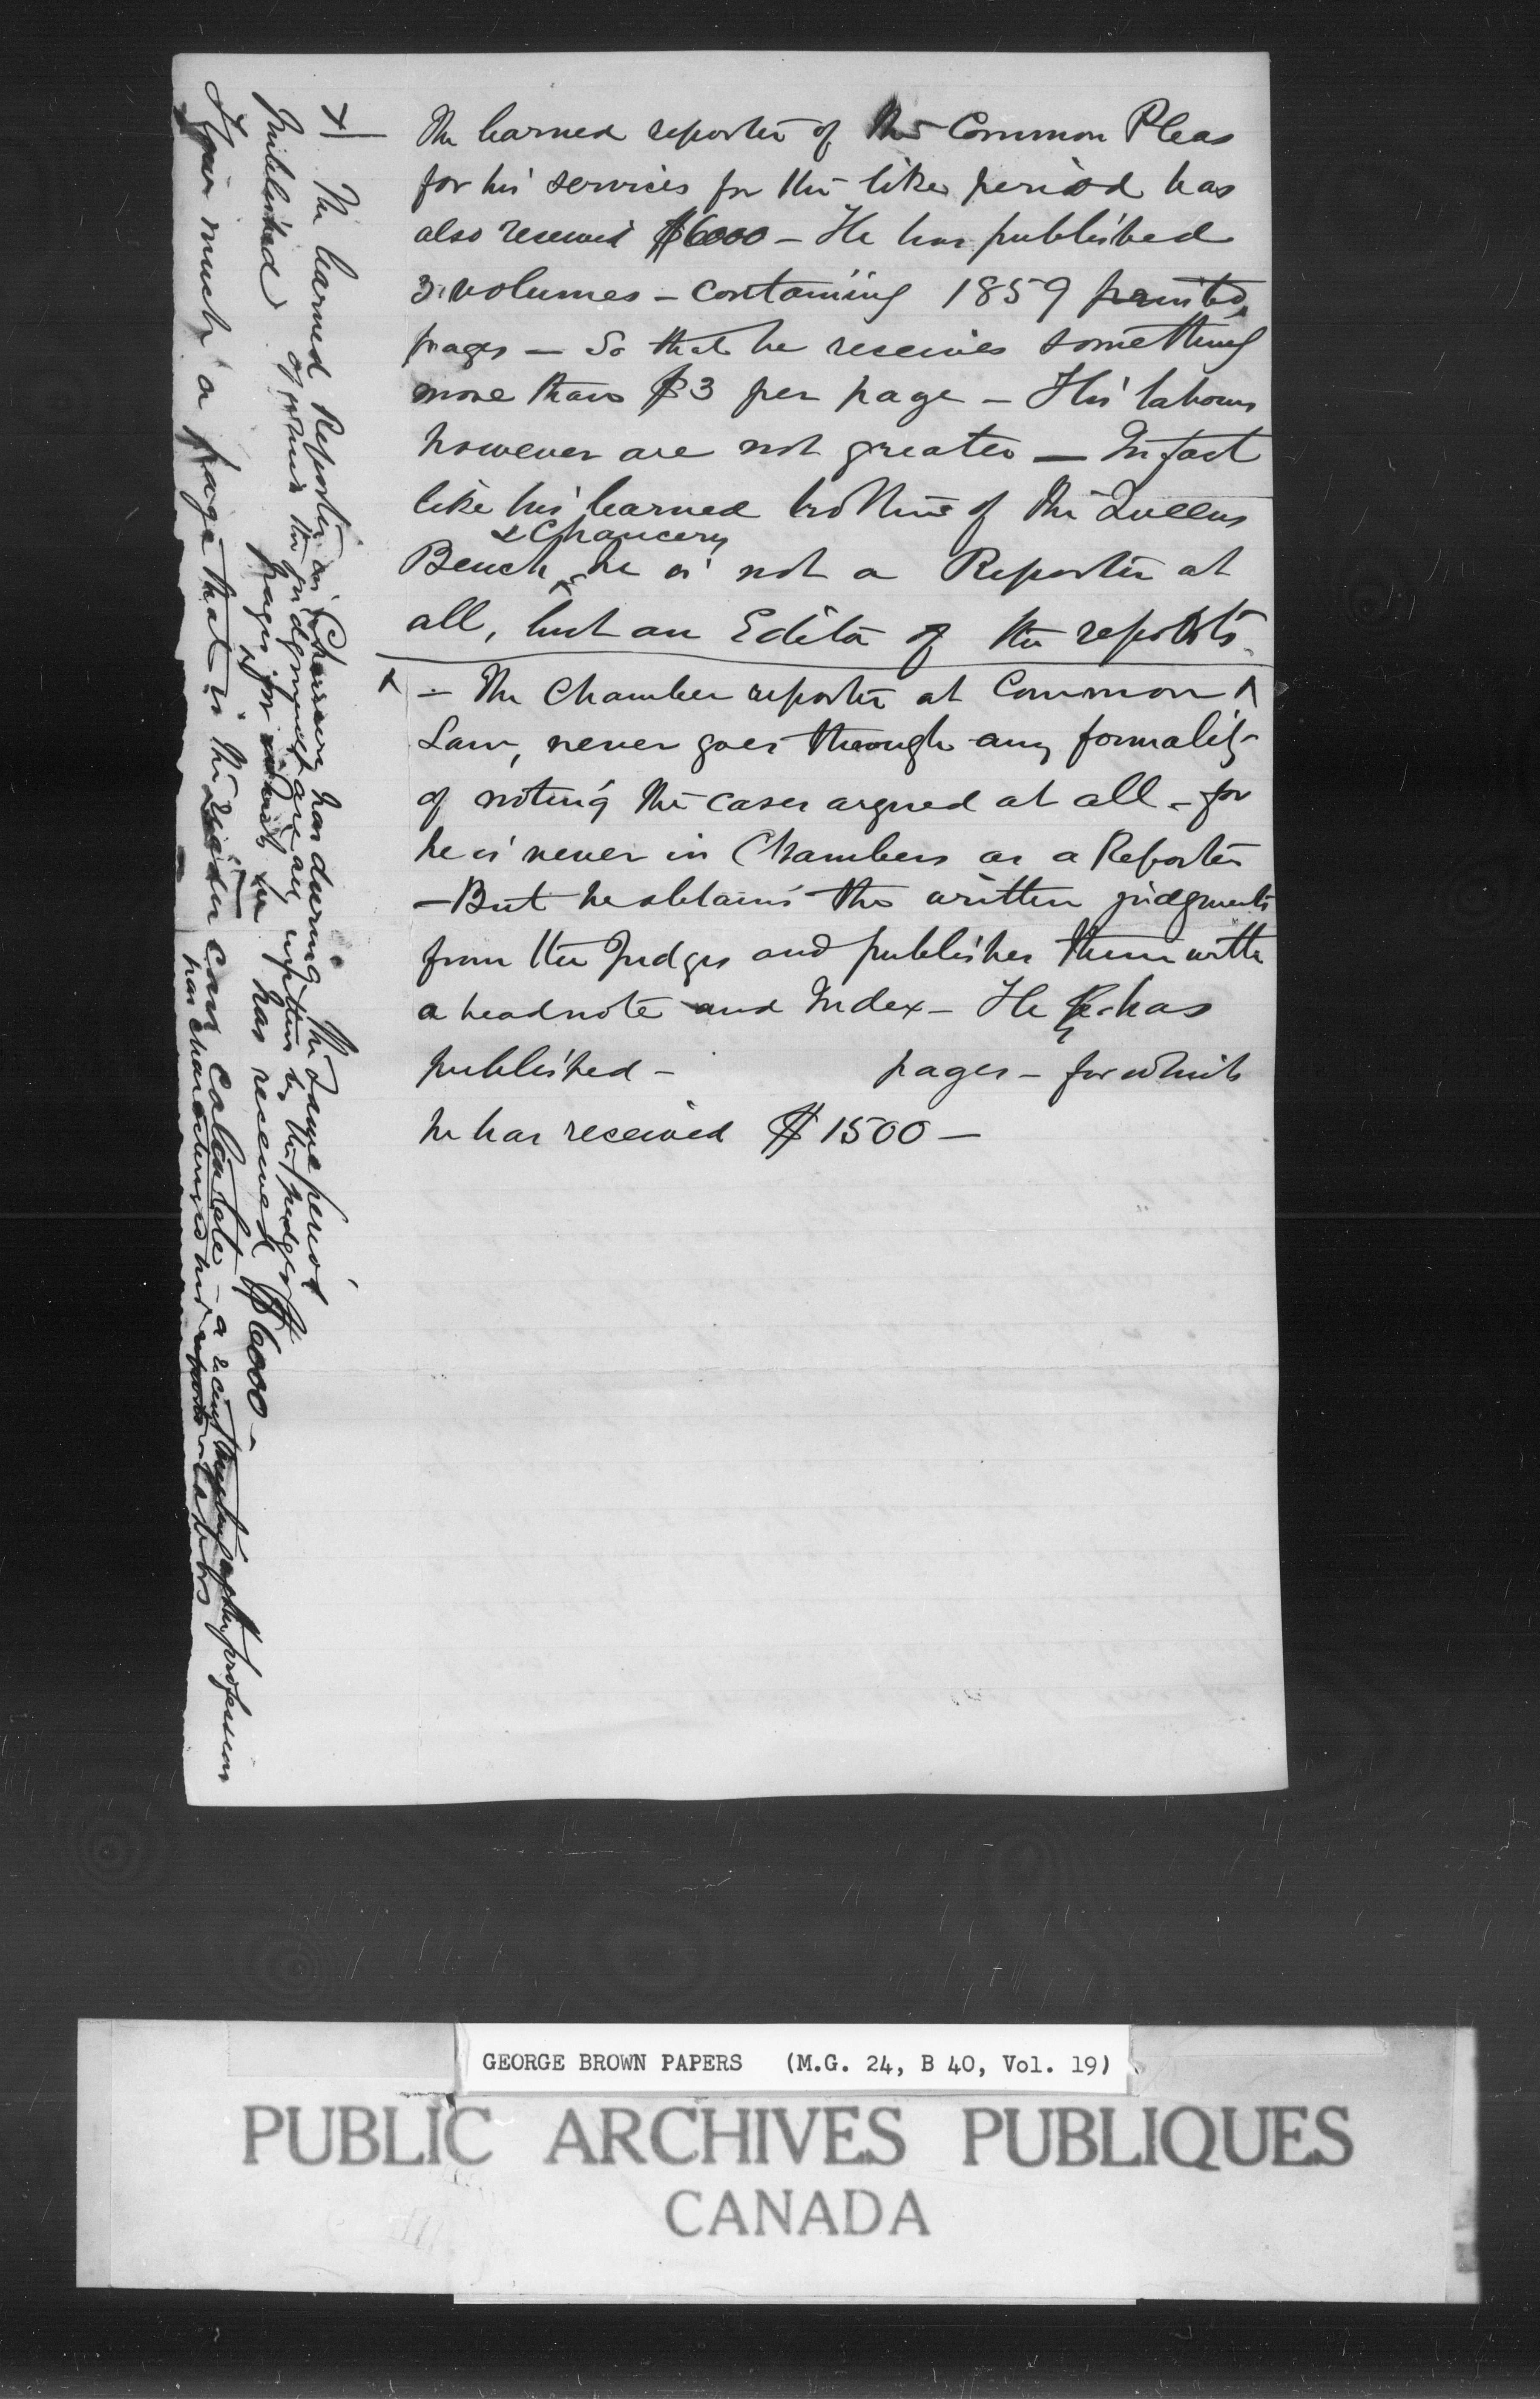 The learned reporter of the Common Pleas
for his services for the like period has
also received $6000 – He has published
3 volumes – containing 1859 printed
pages – So that he receives something
more than $3 per page – His labours
however are not greater – In fact
like his learned brothers of the Queens
& Chancery
Bench he is not a Reporter at
all, but an Editor of the reports.
x – The Chamber reporter at Common
Law, never goes through any formality
of noting the cases argued at all – for
he is never in Chambers as a Reporter
– But he obtains the written judgments
from the Judges and publishes them with
a headnote and Index – He has
published – pages – for which
he has received $1500 –
x The learned Reporter in Chancery has during the same period
published pages for which he has received $6000 –
of which the judgments are all written by the judges
How much a page that is the reader can calculate –
GEORGE BROWN PAPERS (M.G. 24, B 40, Vol. 19)
PUBLIC ARCHIVES PUBLIQUES
CANADA